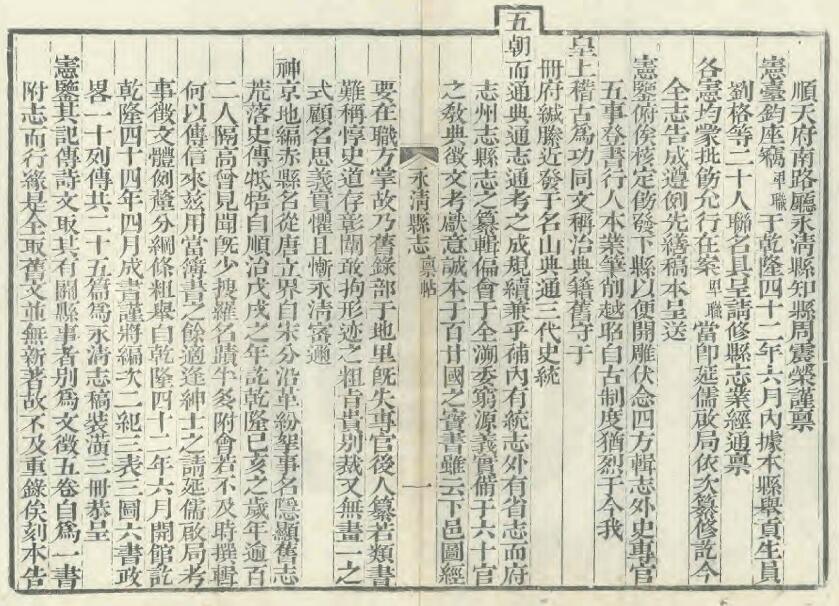 順天府南路廳永清縣知縣周震榮謹禀
憲臺鈞座竊卑職于乾隆四十二年六月內據本縣舉貢生員
劉格等二十人聯名具呈請修縣志業經通禀
各憲均蒙批飭允行在案卑職當卽延儒啟局依次纂修訖今
全志告成遵例先繕稿本呈送
憲鑒俯俟核定飭發下縣以便開雕伏念四方輯志外史專官
五事登書行人本業筆削越照自古制度猶烈于今我
皇上稽古爲功同文稱治典籍舊守于
冊府緘縢近發于名山典通三代史統
五朝而通典通志通考之成規續兼乎補內有統志外有省志而府
志州志縣志之纂輯偏會于全溯委窮源義實備于六十官
之敎典徵文考獻意誠本于百廿國之寶書雖云下邑圖經
永淸縣志 禀帖
一
要在職方掌故乃舊錄部于地里旣失專官後人纂若類書
難稱惇史道存彰闡敢拘形迹之粗旨貴別裁又無畫一之
式顧名思義實懼且慚永淸密邇
神京地編赤縣名從唐立界自宋分沿革紛挐事名隱顯舊志
荒落史傳牴牾自順治戊戌之年訖乾隆己亥之歲年逾百
二人隔高曾見聞旣少搜羅名蹟半多附會若不及時撰輯
何以傳信來玆用當簿書之餘適逢紳士之請延儒啟局考
事徵文體例釐分綱條粗舉自乾隆四十二年六月開館訖
乾隆四十四年四月成書謹將編次二紀三表三圖六書政
畧一十列傳共二十五篇爲永淸志稿裝潢三冊恭呈
憲鑒其記傳詩文取其有關縣事者別爲文徵五卷自爲一書
附志而行緣是全取舊文並無新著故不及重錄俟刻本告